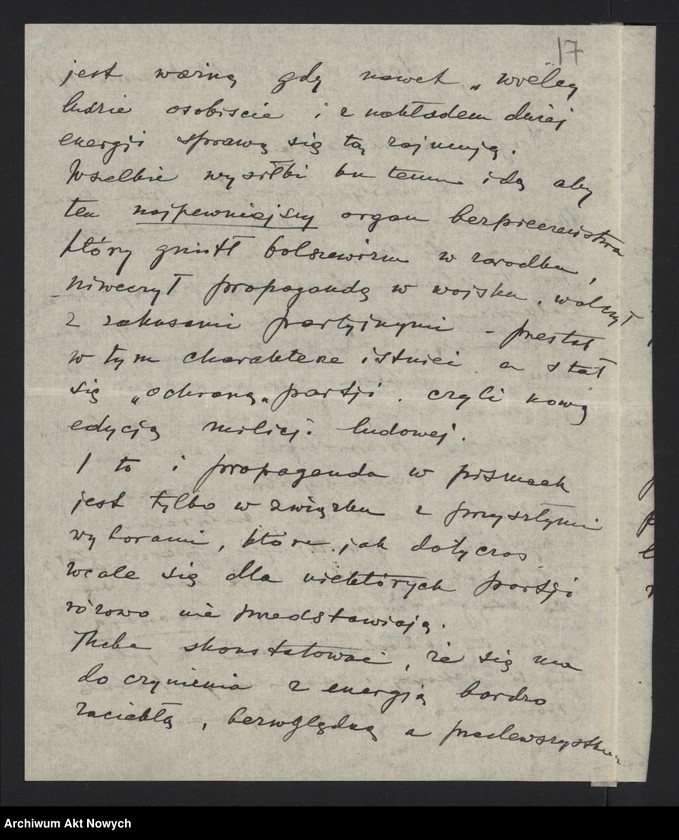 17
jest ważną gdy nawet „wielcy
ludzie osobiście i z nakładem dużej
energji sprawą się tą zajmują.
Wszelkie wysiłki ku temu idą aby
ten najpewniejszy organ bezpieczeństwa
który gniótł bolszewizm w zarodku,
niweczył propagandę w wojsku, walczył
z zakusami partyjnymi - przestał
w tym charakterze istnieć a stał
się „ochroną„ partji. czyli nową
edycją milicji ludowej.
I to i propaganda w pismach
jest tylko w związku z przyszłymi
wyborami, które jak dotyczas
wcale się dla niektórych partji
różowo nie przedstawiają.
Trzeba skonstatować, że się ma
do czynienia z energją bardzo
zaciekłą, bezwzględną a przedewszystkim
Archiwum Akt Nowych